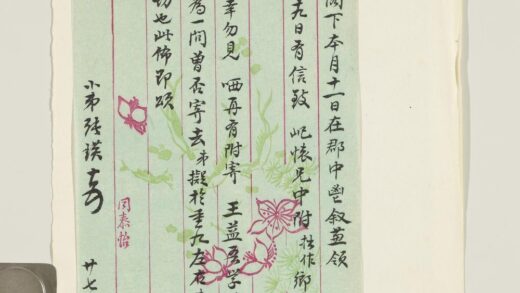 閣下本月十一日在郡中㘴叙並領
九日有信致 屺懷兄中附 拙作鄉
幸勿見 哂再有附寄 王益吾学
為一問曾否寄去弟擬於重九左右
切也此佈即頌
小弟張瑛
同泰怡
廿七